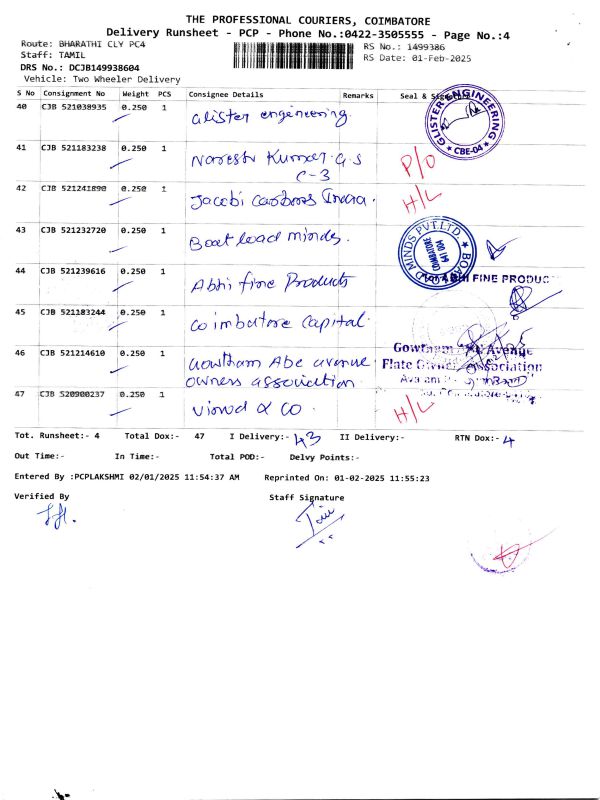 THE PROFESSIONAL COURIERS, COIMBATORE
Delivery Runsheet - PCP - Phone No.:0422-3505555 - Page No.:4
Route: BHARATHI CLY PC4 RS No.: 1499386
Staff: TAMIL RS Date: 01-Feb-2025
DRS No.: DCJB149938604
Vehicle: Two Wheeler Delivery
S No Consignment No Weight PCS Consignee Details Remarks Seal &
40 CJB 521038935 0.250 1 Glister engineering
GLISTER ENGINEERING * CBE-04 *
41 CJB 521183238 0.250 1 Naresh Kumar G.S P/O
C-3
42 CJB 521241890 0.250 1 Jacobi carbons India. H/L
43 CJB 521232720 0.250 1 Boat load minds.
BOATLOAD MINDS PVT.LTD. COIMBATORE 641 004
44 CJB 521239616 0.250 1 Abhi fine Products
For ABHI FINE PRODUC
45 CJB 521183244 0.250 1 Coimbatore Capital.
46 CJB 521214610 0.250 1 Gowtham Abc avenue
owners association
Gowtham Avenue
Flats Owners Association
47 CJB 520900237 0.250 1 Vinod & CO. H/L
Tot. Runsheet:- 4 Total Dox:- 47 I Delivery:- 43 II Delivery:- RTN Dox:- 4
Out Time:- In Time:- Total POD:- Delvy Points:-
Entered By :PCPLAKSHMI 02/01/2025 11:54:37 AM Reprinted On: 01-02-2025 11:55:23
Verified By Staff Signature